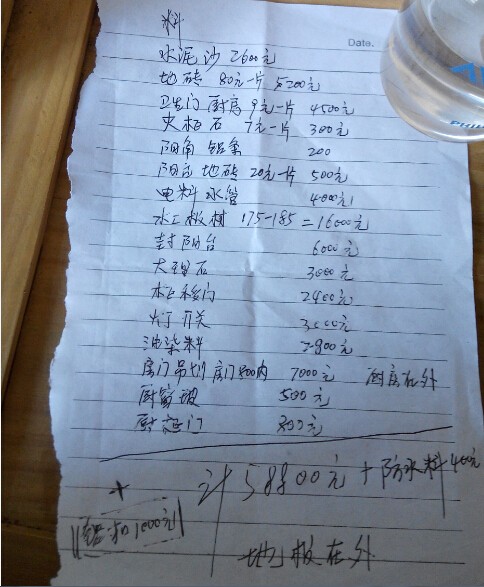 料
Date.
水泥沙 2600元
地砖 80元一片 5200元
卫生门厨房9元一片 4500元
火柏石 7元一片 300元
阳角铝条 200
阳台地砖 20元一片 500元
电料水管 4000元
水工板材 175-185=16000元
封阳台 6000元
大理石 3000元
柜移门 2400元
灯开关 3000元
油染料 2800元
房门吊切房门800内 7000元 厨房在外
厨窗玻 500元
厨移门 800元
计58800元+防水料400元
+
扣1000元
地板在外
PHIL